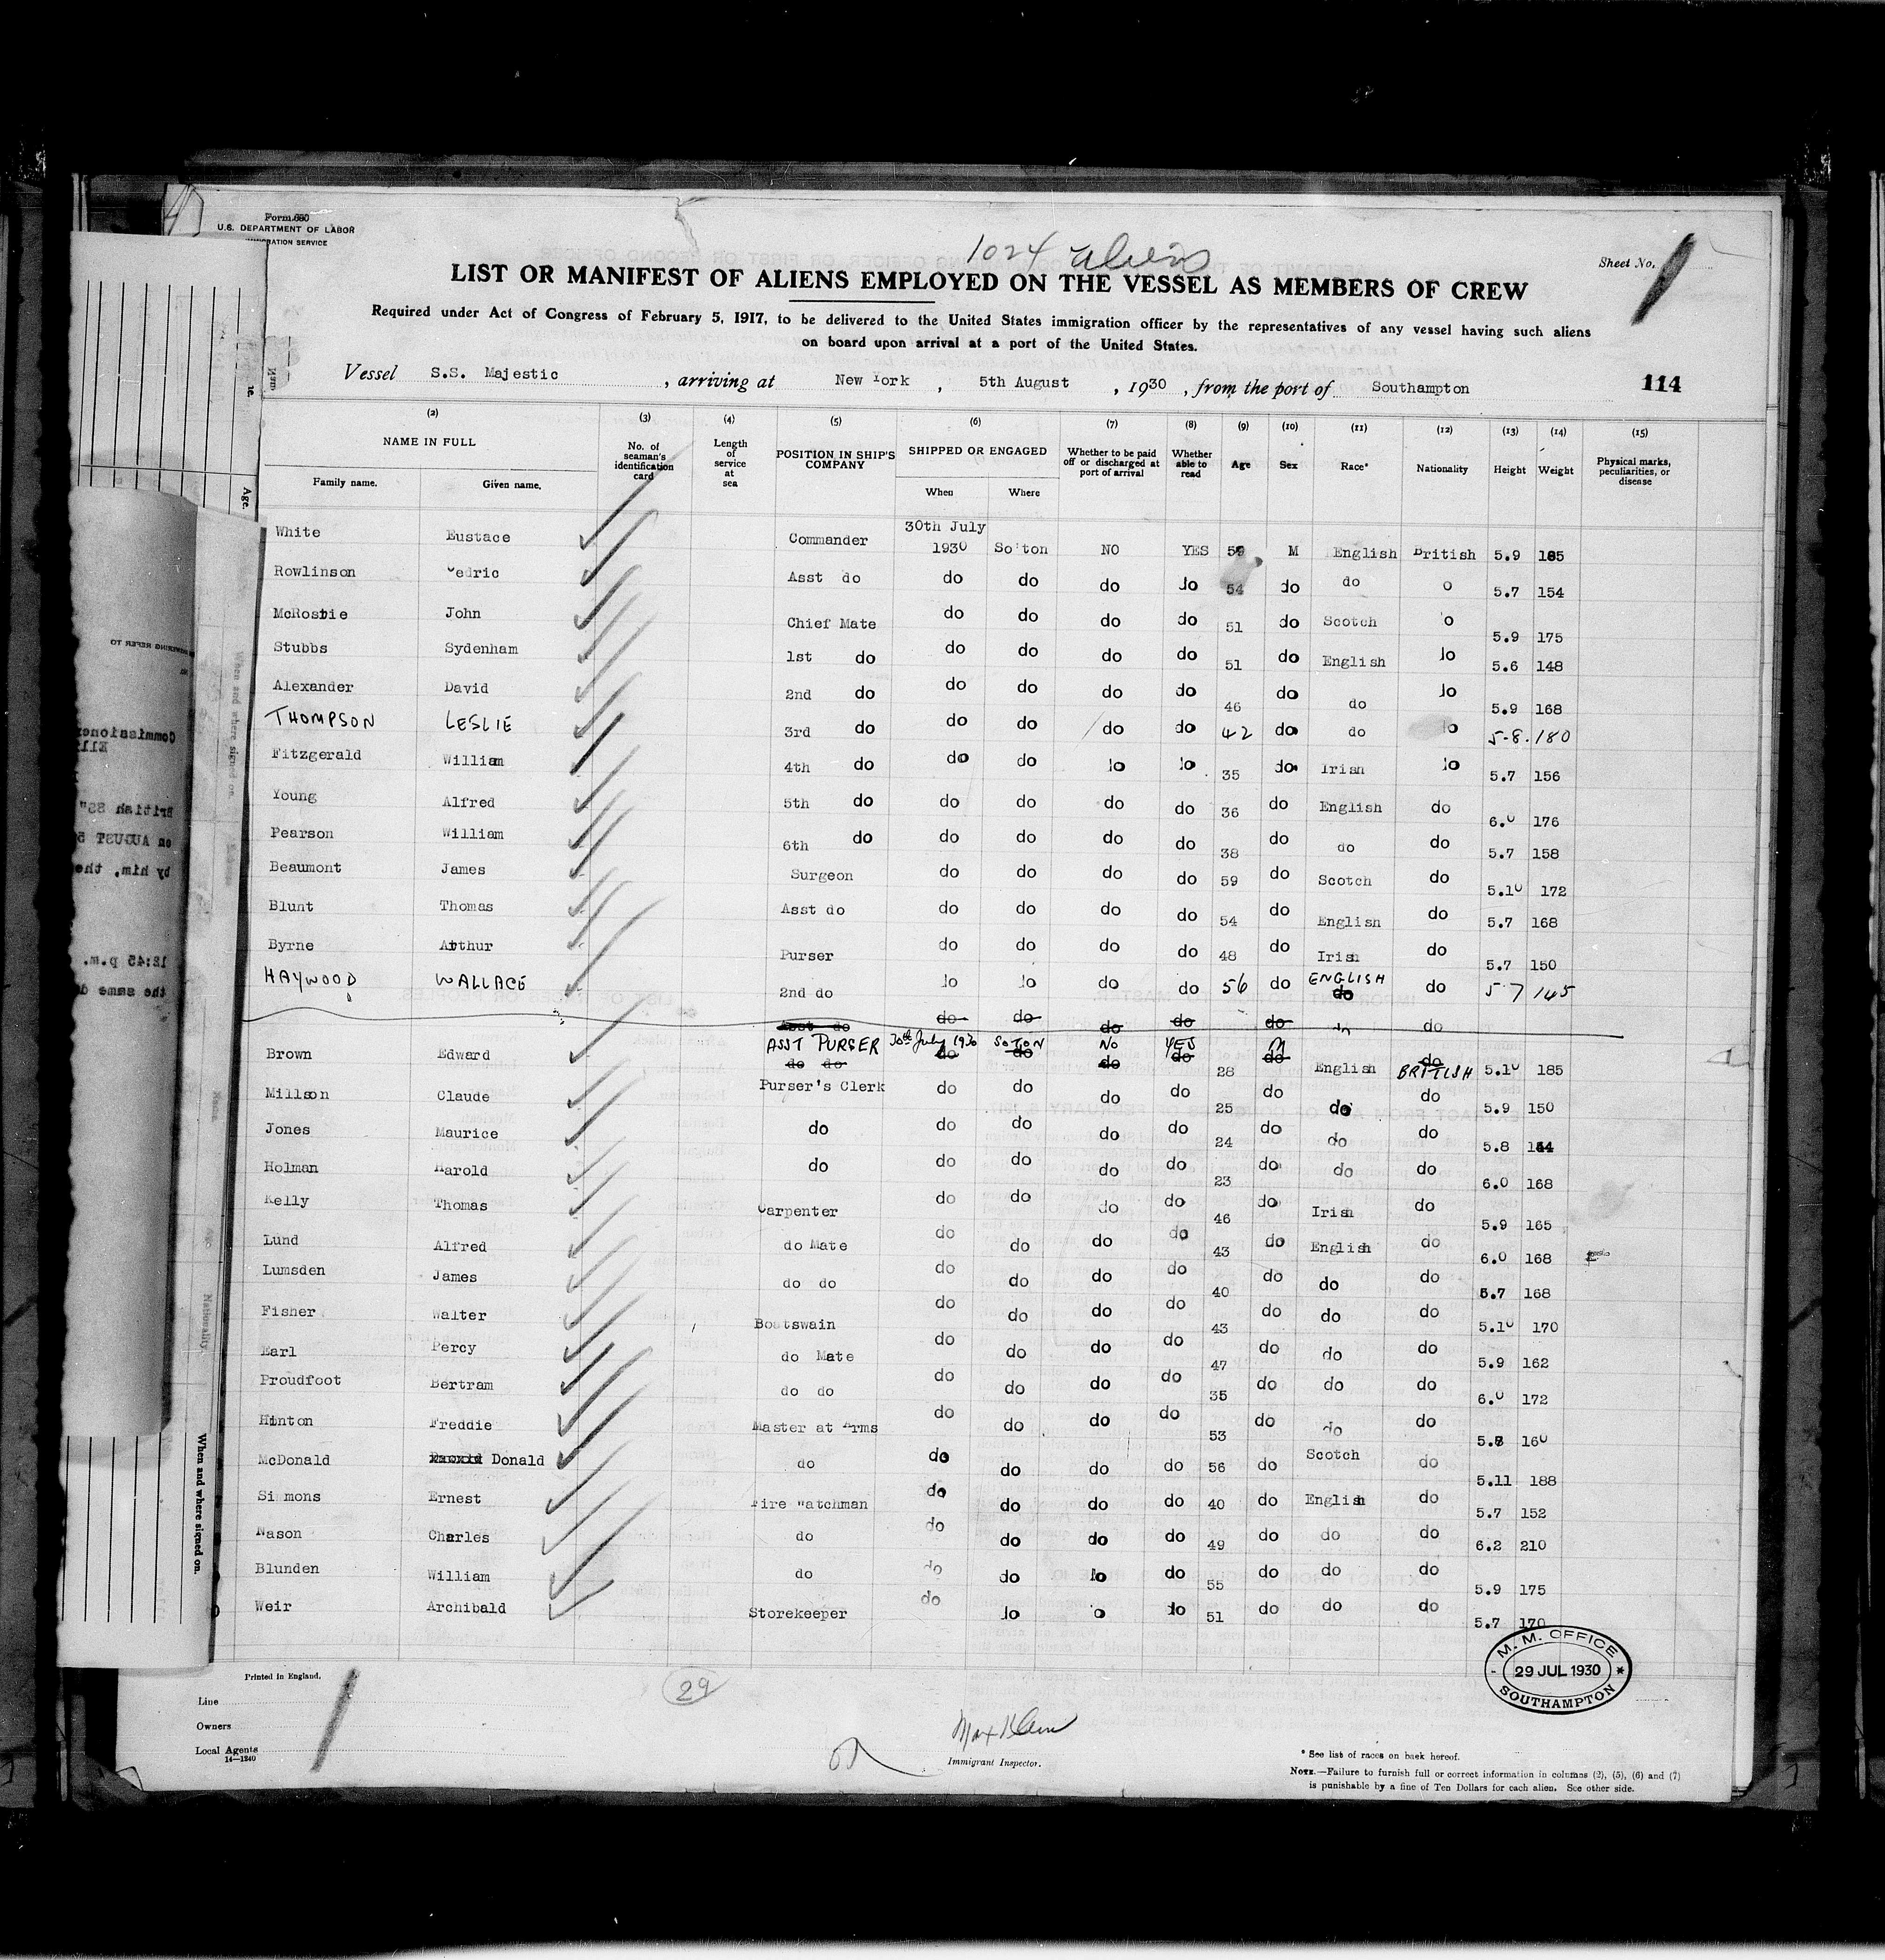 Form 680
U.S. DEPARTMENT OF LABOR
IMMIGRATION SERVICE
1024 aliens
Sheet No. 1
LIST OR MANIFEST OF ALIENS EMPLOYED ON THE VESSEL AS MEMBERS OF CREW
Required under Act of Congress of February 5, 1917, to be delivered to the United States immigration officer by the representatives of any vessel having such aliens
on board upon arrival at a port of the United States.
Vessel S.S. Majestic, arriving at New York, 5th August, 1930, from the port of Southampton 114
(2) (3) (4) (5) (6) (7) (8) (9) (10) (11) (12) (13) (14) (15)
NAME IN FULL No. of seaman's identification card Length of service at sea POSITION IN SHIP'S COMPANY SHIPPED OR ENGAGED Whether to be paid off or discharged at port of arrival Whether able to read Age Sex Race* Nationality Height Weight Physical marks, peculiarities, or disease
Family name. Given name. When Where
White Eustace Commander 30th July 1930 So'ton NO YES 59 M English British 5.9 185
Rowlinson Cedric Asst do do do do do 54 do do o 5.7 154
McRostie John Chief Mate do do do do 51 do Scotch o 5.9 175
Stubbs Sydenham 1st do do do do do 51 do English do 5.6 148
Alexander David 2nd do do do do do 46 do do do 5.9 168
THOMPSON LESLIE 3rd do do do do do 42 do do do 5-8. 180
Fitzgerald William 4th do do do do do 35 do Irish do 5.7 156
Young Alfred 5th do do do do do 36 do English do 6.0 176
Pearson William 6th do do do do do 38 do do do 5.7 158
Beaumont James Surgeon do do do do 59 do Scotch do 5.10 172
Blunt Thomas Asst do do do do do 54 do English do 5.7 168
Byrne Arthur Purser do do do do 48 do Irish do 5.7 150
HAYWOOD WALLACE 2nd do do do do do 56 do ENGLISH do do 5 7 145
Asst do do do do do do do do
Brown Edward ASST PURSER 30th July 1930 SOTON NO YES 28 M English BRITISH 5.10 185
do do do do do do do do
Millson Claude Purser's Clerk do do do do 25 do do do 5.9 150
Jones Maurice do do do do do 24 do do do 5.8
Holman Harold do do do do do 23 do do do 6.0 168
Kelly Thomas Carpenter do do do do 46 do Irish do 5.9 165
Lund Alfred do Mate do do do do 43 do English do 6.0 168
Lumsden James do do do do do do 40 do do do 5.7 168
Fisher Walter Boatswain do do do do 43 do do do 5.10 170
Earl Percy do Mate do do do do 47 do do do 5.9 162
Proudfoot Bertram do do do do do do 35 do do do 6.0 172
Hinton Freddie Master at Arms do do do do 53 do do do 5.8 160
McDonald Donald do do do do do 56 do Scotch do 5.11 188
Simmons Ernest Fire Watchman do do do do 40 do English do 5.7 152
Nason Charles do do do do do 49 do do do 6.2 210
Blunden William do do do do do 55 do do do 5.9 175
Weir Archibald Storekeeper do do do do 51 do do do 5.7 170
M. M. OFFICE
29 JUL 1930
SOUTHAMPTON
Printed in England.
29
Line
Owners
Local Agents
14—1240
Immigrant Inspector.
* See list of races on back hereof.
NOTE.—Failure to furnish full or correct information in columns (2), (5), (6) and (7)
is punishable by a fine of Ten Dollars for each alien. See other side.
Age.
When and where signed on.
Nationality.
When and where signed on.